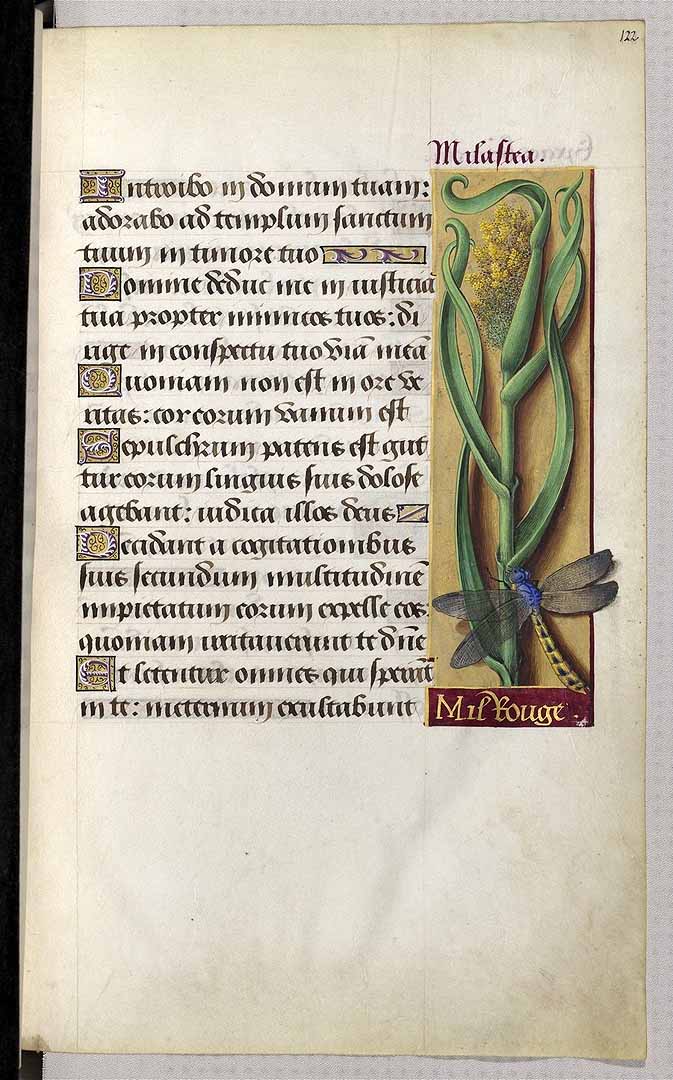 122
Milastea.
Introibo in domum tuam:
adorabo ad templum sanctum
tuum in timore tuo
Domine deduc me in iusticia
tua propter inimicos tuos: di
rige in conspectu tuo viã meã
Quoniam non est in ore ve
ritas: cor eorum vanum est
Sepulchrum patens est gut
tur eorum linguis suis dolose
agebant: iudica illos deus
Decidant a cogitationibus
suis secundum multitudinẽ
impietatum eorum expelle eos:
quoniam irritaverunt te dñe
Et letentur omnes qui sperãt
in te: ineternum exultabunt
Mil Rouge.